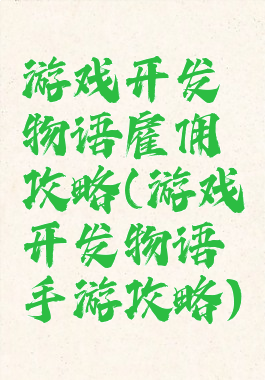 游戏开发
物语雇佣
攻略(游戏
开发物语
手游攻略)